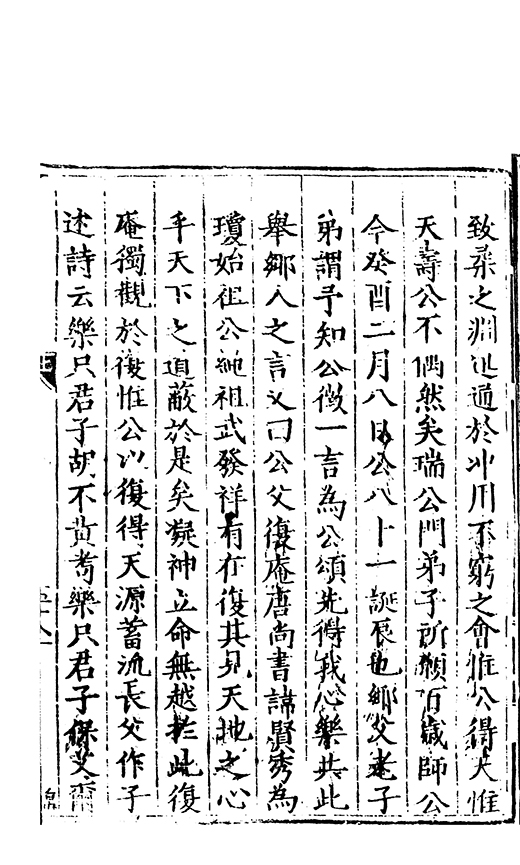 致桑之淵汜適於冲用不窮之會惟公得天惟
天壽公不偶然矣瑞公門弟子祈願百歲師公
今癸酉二月八日公八十一誕辰也鄉父老子
弟謂予知公徵一言為公頌先得我心樂共此
舉鄉人之言又曰公父復庵唐尚書諱賢秀為
瓊始祖公繩祖武發祥有在復其見天地之心
乎天下之道蔽於是矣凝神立命無越於此復
庵獨觀於復惟公以復得天源蓄流長父作子
述詩云樂只君子胡不黃耇樂只君子保艾爾